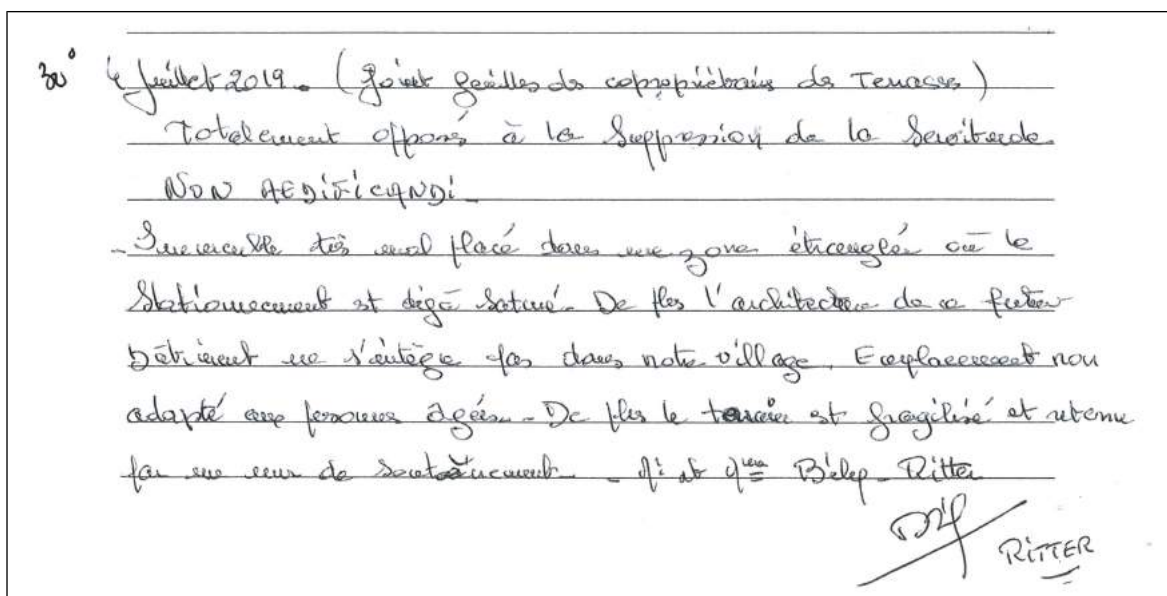 30° 4 Juillet 2019. (Joint feuilles de copropriétaires des Terrasses)
Totalement opposés à la Suppression de la Servitude
NON AEDIFICANDI
- Immeuble très mal placé dans une zone étranglée où le
Stationnement est déjà saturé. De plus l'architecture de ce futur
bâtiment ne s'intègre pas dans notre village. Emplacement non
adapté aux personnes âgées. - De plus le terrain est fragilisé et retenu
par un mur de soutènement. - Mr et Mme - Ritter
RITTER